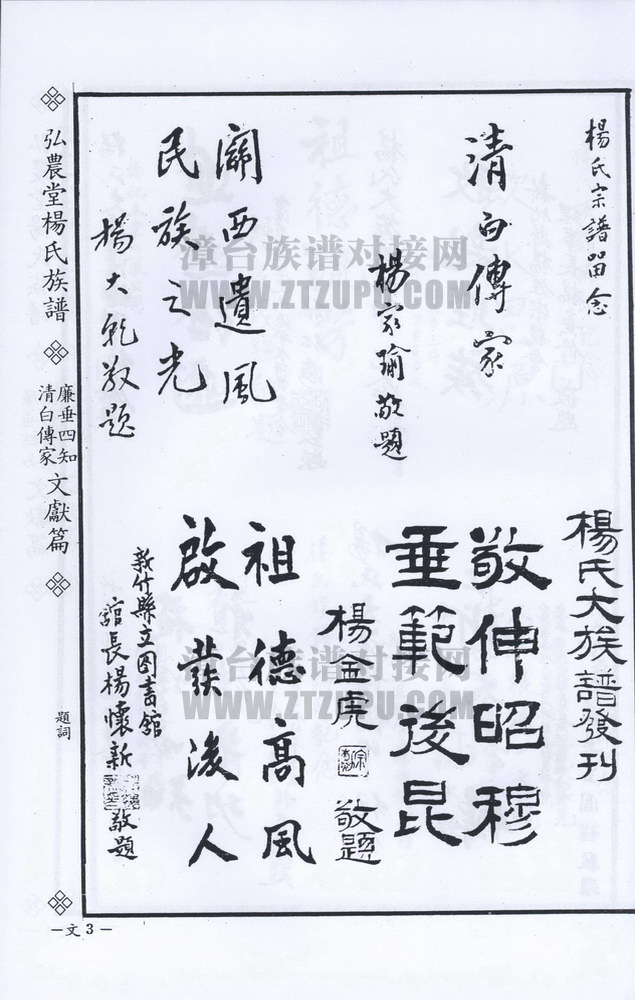 楊氏宗譜留念
清白傳家
楊家瑜敬題
關西遺風
民族之光
楊大乾敬題
楊氏大族譜發刊
敬伸昭穆
垂範後昆
楊金虎
敬題
祖德高風
啟發後人
新竹縣立图書舘
舘長楊懷新
敬題
弘農堂楊氏族譜
廉垂四知
清白傳家
文獻篇
題詞
—文 3 —
漳台族谱对接网
WWW.ZTZUPU.COM
漳台族谱对接网
WWW.ZTZUPU.COM